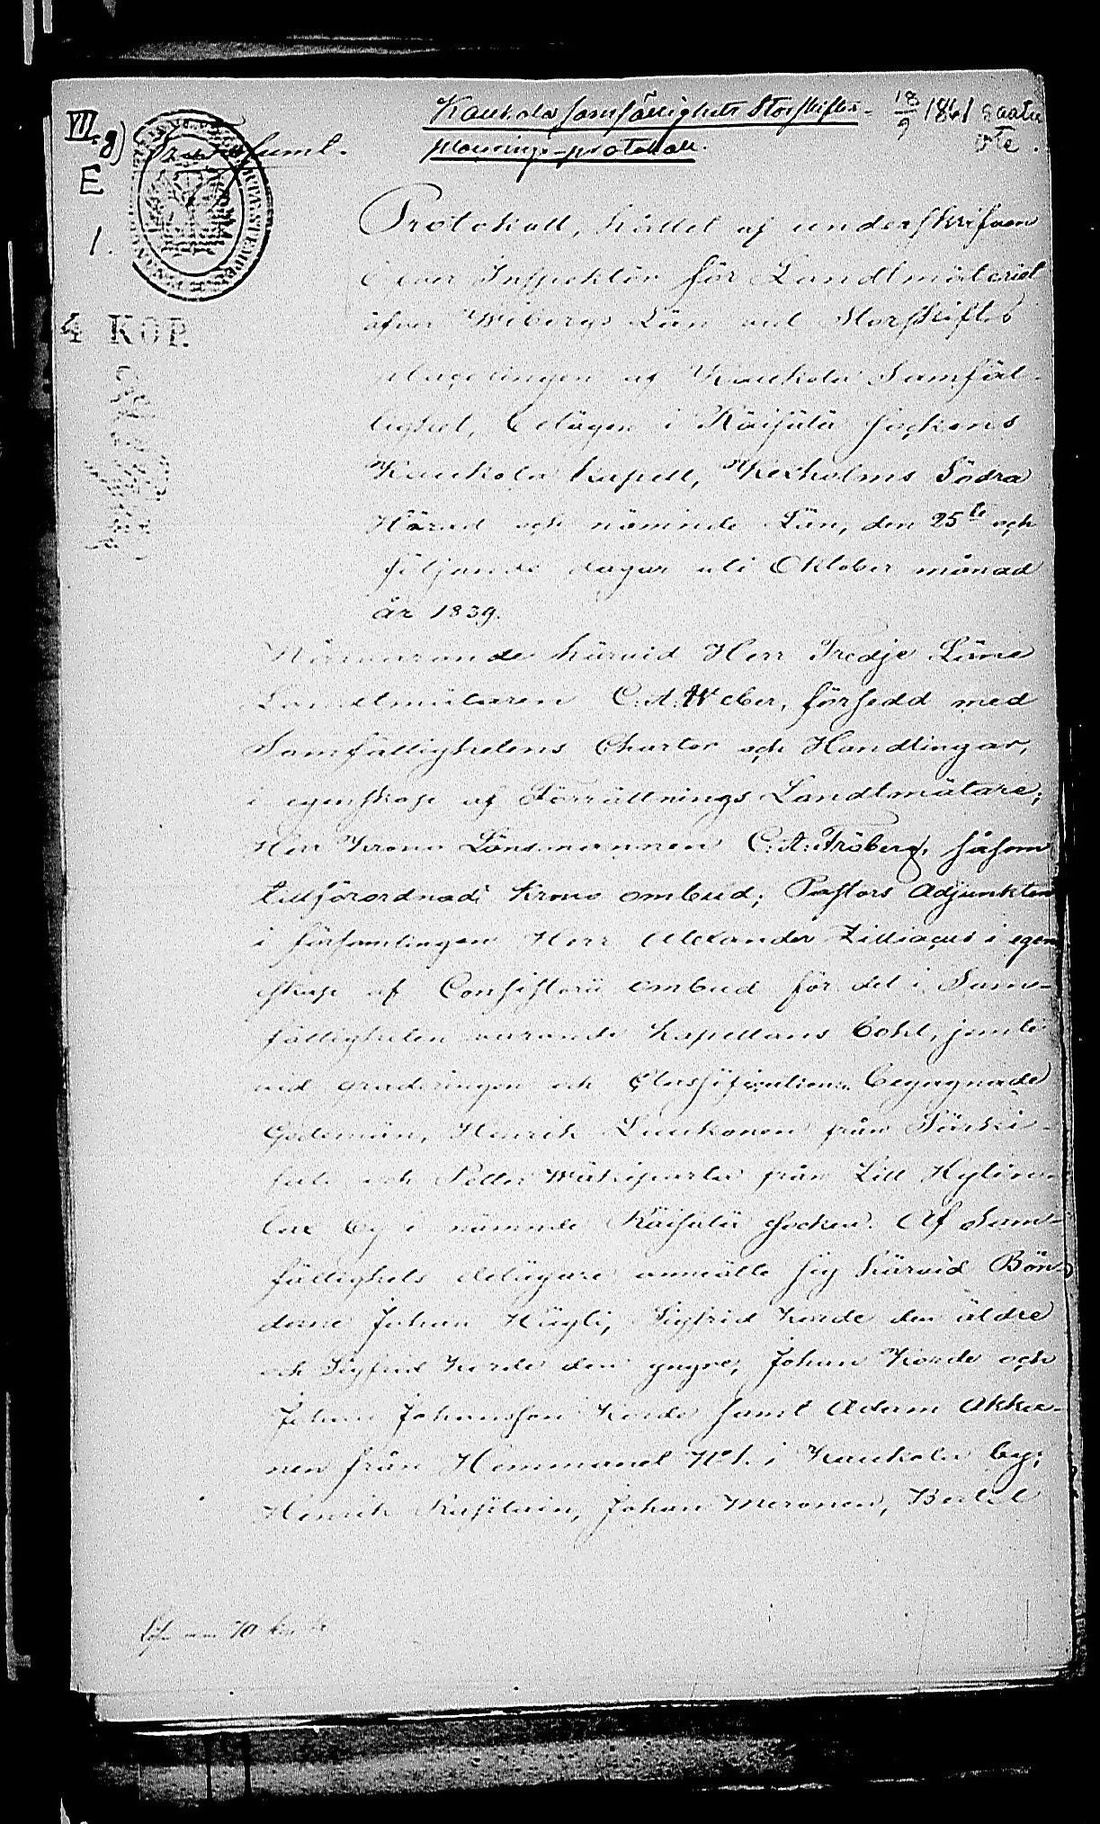 VII. g)
E
1.
4 KOP.
Kaukola samfällighets Storskiftes-
pläggnings-protokoll.
18/9 1861 saatu
ote.
Protokoll, hållet af underskrifven
Öfver Inspektör för Landtmäteriet
öfver Wiborgs Län vid Storskiftes
af Kaukola Samfäl-
lighet, belägen i Räisälä Sockens
Kaukola kapell, Kexholms Södra
Härad och nämnde Län, den 25te och
följande dagar uti Oktober månad
år 1839.
Närvarande härvid Herr Tredje Läne
Landtmätaren C. A. Weber, försedd med
Samfällighetens Chartor och Handlingar,
i egenskap af Förrättnings Landtmätare;
Herr Krono Länsmannen C. A. Fröberg, såsom
tillförordnadt Krono ombud; Pastors Adjunkten
i församlingen Herr Alexander Zilliacus i egen-
skap af Consistorii ombud för det i Sam-
fälligheten varande Kapellans Bohl, jemte
vid graderingen och Classifikationen begagnade
Godemän, Henrik Luukonen från Särki-
och Petter Mäkiparta från Lill
by i nämnde Räisälä Socken. Af Sam-
fällighets delägare anmälte sig härvid Bön-
derne Johan Hägli, Sigfrid Korde den äldre
och Sigfrid Korde den yngre, Johan Korde och
Johan Johansson Korde samt Adam Akka-
nen från Hemmanet N:o 1. i Kaukola by;
Henrik Johan Meronen, Bertel